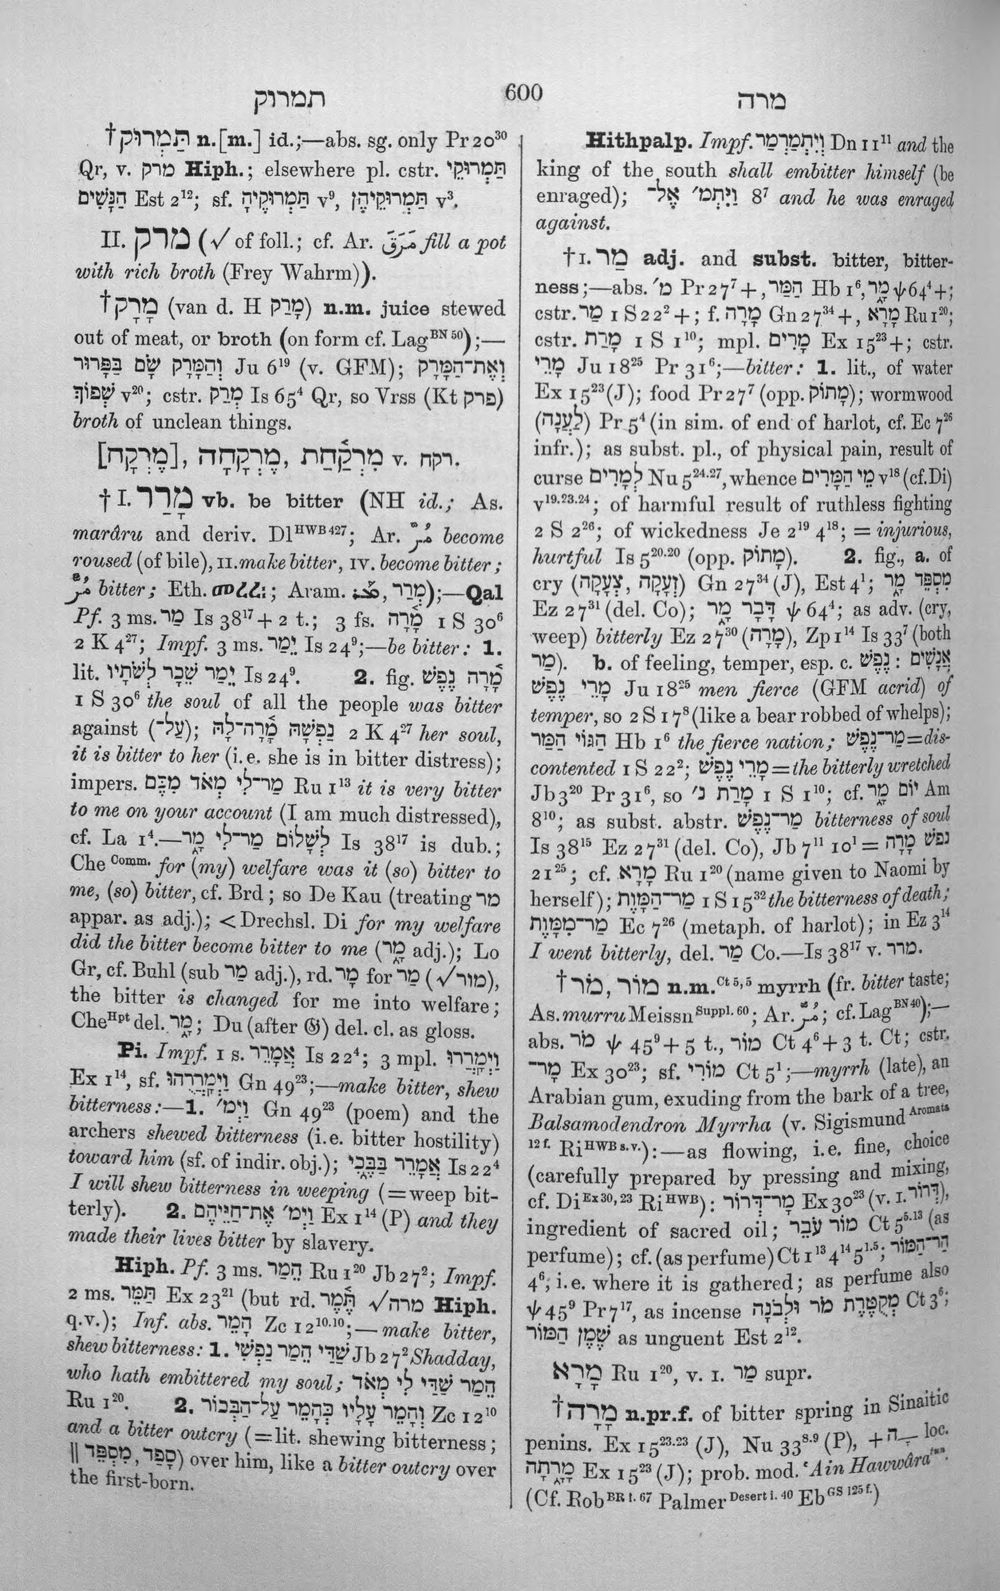 תמרוק
600
מרה
† תַּמְרוּק n.[m.] id.;—abs. sg. only Pr 20³⁰
Qr, v. מרק Hiph.; elsewhere pl. cstr. תַּמְרוּקֵי
הַנָּשִׁים Est 2¹²; sf. תַּמְרוּקֶיהָ v⁹, תַּמְרוּקֵיהֶן v³.
II. מרק (√ of foll.; cf. Ar. مَرَقَ fill a pot
with rich broth (Frey Wahrm)).
† מָרָק (van d. H מָרַק) n.m. juice stewed
out of meat, or broth (on form cf. Lag ᴮᴺ ⁵⁰);—
וְאֶת־הַמָּרָק שָׂם בַּפָּרוּר Ju 6¹⁹ (v. GFM); וְהַמָּרָק
שְׁפוֹךְ v²⁰; cstr. מְרַק Is 65⁴ Qr, so Vrss (Kt פרק)
broth of unclean things.
[מֶרְקָח], מֶרְקָחָה, מִרְקַ֫חַת v. רקח.
† I. מָרַר vb. be bitter (NH id.; As.
marâru and deriv. Dl ᴴᵂᴮ ⁴²⁷; Ar. مَرَّ become
roused (of bile), II. make bitter, IV. become bitter;
مُرّ bitter; Eth. መረረ፡; Aram. מְרַר, );—Qal
Pf. 3 ms. מַר Is 38¹⁷ + 2 t.; 3 fs. מָ֫רָה 1 S 30⁶
2 K 4²⁷; Impf. 3 ms. יֵמַר Is 24⁹;—be bitter: 1.
lit. יֵמַר שֵׁכָר לְשֹׁתָיו Is 24⁹. 2. fig. מָ֫רָה נֶפֶשׁ
1 S 30⁶ the soul of all the people was bitter
against (עַל־); נַפְשָׁהּ מָ֫רָה־לָהּ 2 K 4²⁷ her soul,
it is bitter to her (i.e. she is in bitter distress);
impers. מַר־לִי מְאֹד מִכֶּם Ru 1¹³ it is very bitter
to me on your account (I am much distressed),
cf. La 1⁴.—לְשָׁלוֹם מַר־לִי מָר Is 38¹⁷ is dub.;
Che ᶜᵒᵐᵐ· for (my) welfare was it (so) bitter to
me, (so) bitter, cf. Brd; so De Kau (treating מר
appar. as adj.); < Drechsl. Di for my welfare
did the bitter become bitter to me (מָר adj.); Lo
Gr, cf. Buhl (sub מַר adj.), rd. מָר for מַר (√מור),
the bitter is changed for me into welfare;
Che ᴴᵖᵗ del. מָר; Du (after 𝔊) del. cl. as gloss.
Pi. Impf. 1 s. אֲמָרֵר Is 22⁴; 3 mpl. וַיְמָרְרוּ
Ex 1¹⁴, sf. וַיְמָרְרֻהוּ Gn 49²³;—make bitter, shew
bitterness:—1. וַיְמ׳ Gn 49²³ (poem) and the
archers shewed bitterness (i.e. bitter hostility)
toward him (sf. of indir. obj.); אֲמָרֵר בַּבֶּכִי Is 22⁴
I will shew bitterness in weeping (=weep bit-
terly). 2. וַיְמ׳ אֶת־חַיֵּיהֶם Ex 1¹⁴ (P) and they
made their lives bitter by slavery.
Hiph. Pf. 3 ms. הֵמַר Ru 1²⁰ Jb 27²; Impf.
2 ms. תַּמֵּר Ex 23²¹ (but rd. תֶּמֶר √מרה Hiph.
q.v.); Inf. abs. הָמֵר Zc 12¹⁰·¹⁰;—make bitter,
shew bitterness: 1. שַׁדַּי הֵמַר נַפְשִׁי Jb 27² Shadday,
who hath embittered my soul; הֵמַר שַׁדַּי לִי מְאֹד
Ru 1²⁰. 2. וְהָמֵר עָלָיו כְּהָמֵר עַל־הַבְּכוֹר Zc 12¹⁰
and a bitter outcry (=lit. shewing bitterness;
‖ סָפַד, מִסְפֵּד) over him, like a bitter outcry over
the first-born.
Hithpalp. Impf. וַיִּתְמַרְמַר Dn 11¹¹ and the
king of the south shall embitter himself (be
enraged); וַיִּתְמ׳ אֶל־ 8⁷ and he was enraged
against.
† I. מַר adj. and subst. bitter, bitter-
ness;—abs. מ׳ Pr 27⁷ +, הַמַּר Hb 1⁶, מָר ψ 64⁴ +;
cstr. מַר 1 S 22² +; f. מָרָה Gn 27³⁴ +, מָרָא Ru 1²⁰;
cstr. מָרַת 1 S 1¹⁰; mpl. מָרִים Ex 15²³ +; cstr.
מָרֵי Ju 18²⁵ Pr 31⁶;—bitter: 1. lit., of water
Ex 15²³ (J); food Pr 27⁷ (opp. מָתוֹק); wormwood
(לַעֲנָה) Pr 5⁴ (in sim. of end of harlot, cf. Ec 7²⁶
infr.); as subst. pl., of physical pain, result of
curse לְמָרִים Nu 5²⁴·²⁷, whence מֵי הַמָּרִים v¹⁸ (cf. Di)
v¹⁹·²³·²⁴; of harmful result of ruthless fighting
2 S 2²⁶; of wickedness Je 2¹⁹ 4¹⁸; = injurious,
hurtful Is 5²⁰·²⁰ (opp. מָתוֹק). 2. fig., a. of
cry (זְעָקָה, צְעָקָה) Gn 27³⁴ (J), Est 4¹; מִסְפֵּד מָר
Ez 27³¹ (del. Co); דָּבָר מָר ψ 64⁴; as adv. (cry,
weep) bitterly Ez 27³⁰ (מָרָה), Zp 1¹⁴ Is 33⁷ (both
מַר). b. of feeling, temper, esp. c. נֶפֶשׁ: אֲנָשִׁים
מָרֵי נֶפֶשׁ Ju 18²⁵ men fierce (GFM acrid) of
temper, so 2 S 17⁸ (like a bear robbed of whelps);
הַגּוֹי הַמַּר Hb 1⁶ the fierce nation; מַר־נֶפֶשׁ = dis-
contented 1 S 22²; מָרֵי נֶפֶשׁ = the bitterly wretched
Jb 3²⁰ Pr 31⁶, so מָרַת נ׳ 1 S 1¹⁰; cf. יוֹם מָר Am
8¹⁰; as subst. abstr. מַר־נֶפֶשׁ bitterness of soul
Is 38¹⁵ Ez 27³¹ (del. Co), Jb 7¹¹ 10¹ = נפשׁ מָרָה
21²⁵; cf. מָרָא Ru 1²⁰ (name given to Naomi by
herself); מַר־הַמָּוֶת 1 S 15³² the bitterness of death;
מַר־מִמָּוֶת Ec 7²⁶ (metaph. of harlot); in Ez 3¹⁴
I went bitterly, del. מַר Co.—Is 38¹⁷ v. מרר.
† מֹר, מוֹר n.m. ᶜᵗ ⁵,⁵ myrrh (fr. bitter taste;
As. murru Meissn ˢᵘᵖᵖˡ· ⁶⁰; Ar. مُرّ; cf. Lag ᴮᴺ ⁴⁰);—
abs. מֹר ψ 45⁹ + 5 t., מוֹר Ct 4⁶ + 3 t. Ct; cstr.
מָר־ Ex 30²³; sf. מוֹרִי Ct 5¹;—myrrh (late), an
Arabian gum, exuding from the bark of a tree,
Balsamodendron Myrrha (v. Sigismund ᴬʳᵒᵐᵃᵗᵃ
¹² ᶠ· Ri ᴴᵂᴮ ˢ·ᵛ·):—as flowing, i.e. fine, choice
(carefully prepared by pressing and mixing,
cf. Di ᴱˣ ³⁰,²³ Ri ᴴᵂᴮ): מָר־דְּרוֹר Ex 30²³ (v. I. דְּרוֹר),
ingredient of sacred oil; מוֹר עֹבֵר Ct 5⁵·¹³ (as
perfume); cf. (as perfume) Ct 1¹³ 4¹⁴ 5¹·⁵; הַר־הַמּוֹר
4⁶, i.e. where it is gathered; as perfume also
ψ 45⁹ Pr 7¹⁷, as incense מְקֻטֶּרֶת מֹר וּלְבֹנָה Ct 3⁶;
שֶׁמֶן הַמּוֹר as unguent Est 2¹².
מָרָא Ru 1²⁰, v. I. מַר supr.
† מָרָה n.pr.f. of bitter spring in Sinaitic
penins. Ex 15²³·²³ (J), Nu 33⁸·⁹ (P), + ־ָה loc.
מָרָתָה Ex 15²³ (J); prob. mod. ʿAin Hawwâra
(Cf. Rob ᴮᴿ ⁱ· ⁶⁷ Palmer ᴰᵉˢᵉʳᵗ ⁱ· ⁴⁰ Eb ᴳˢ ¹²⁵ ᶠ·)